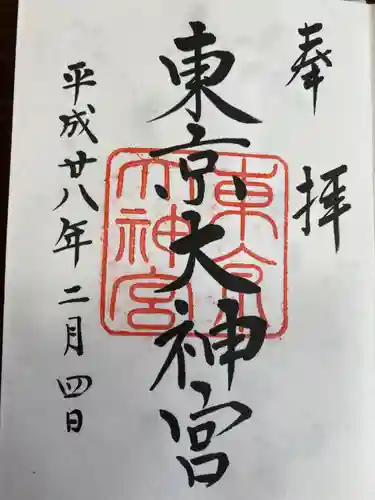 奉拝
東京大神宮
東京大神宮
平成廿八年二月四日